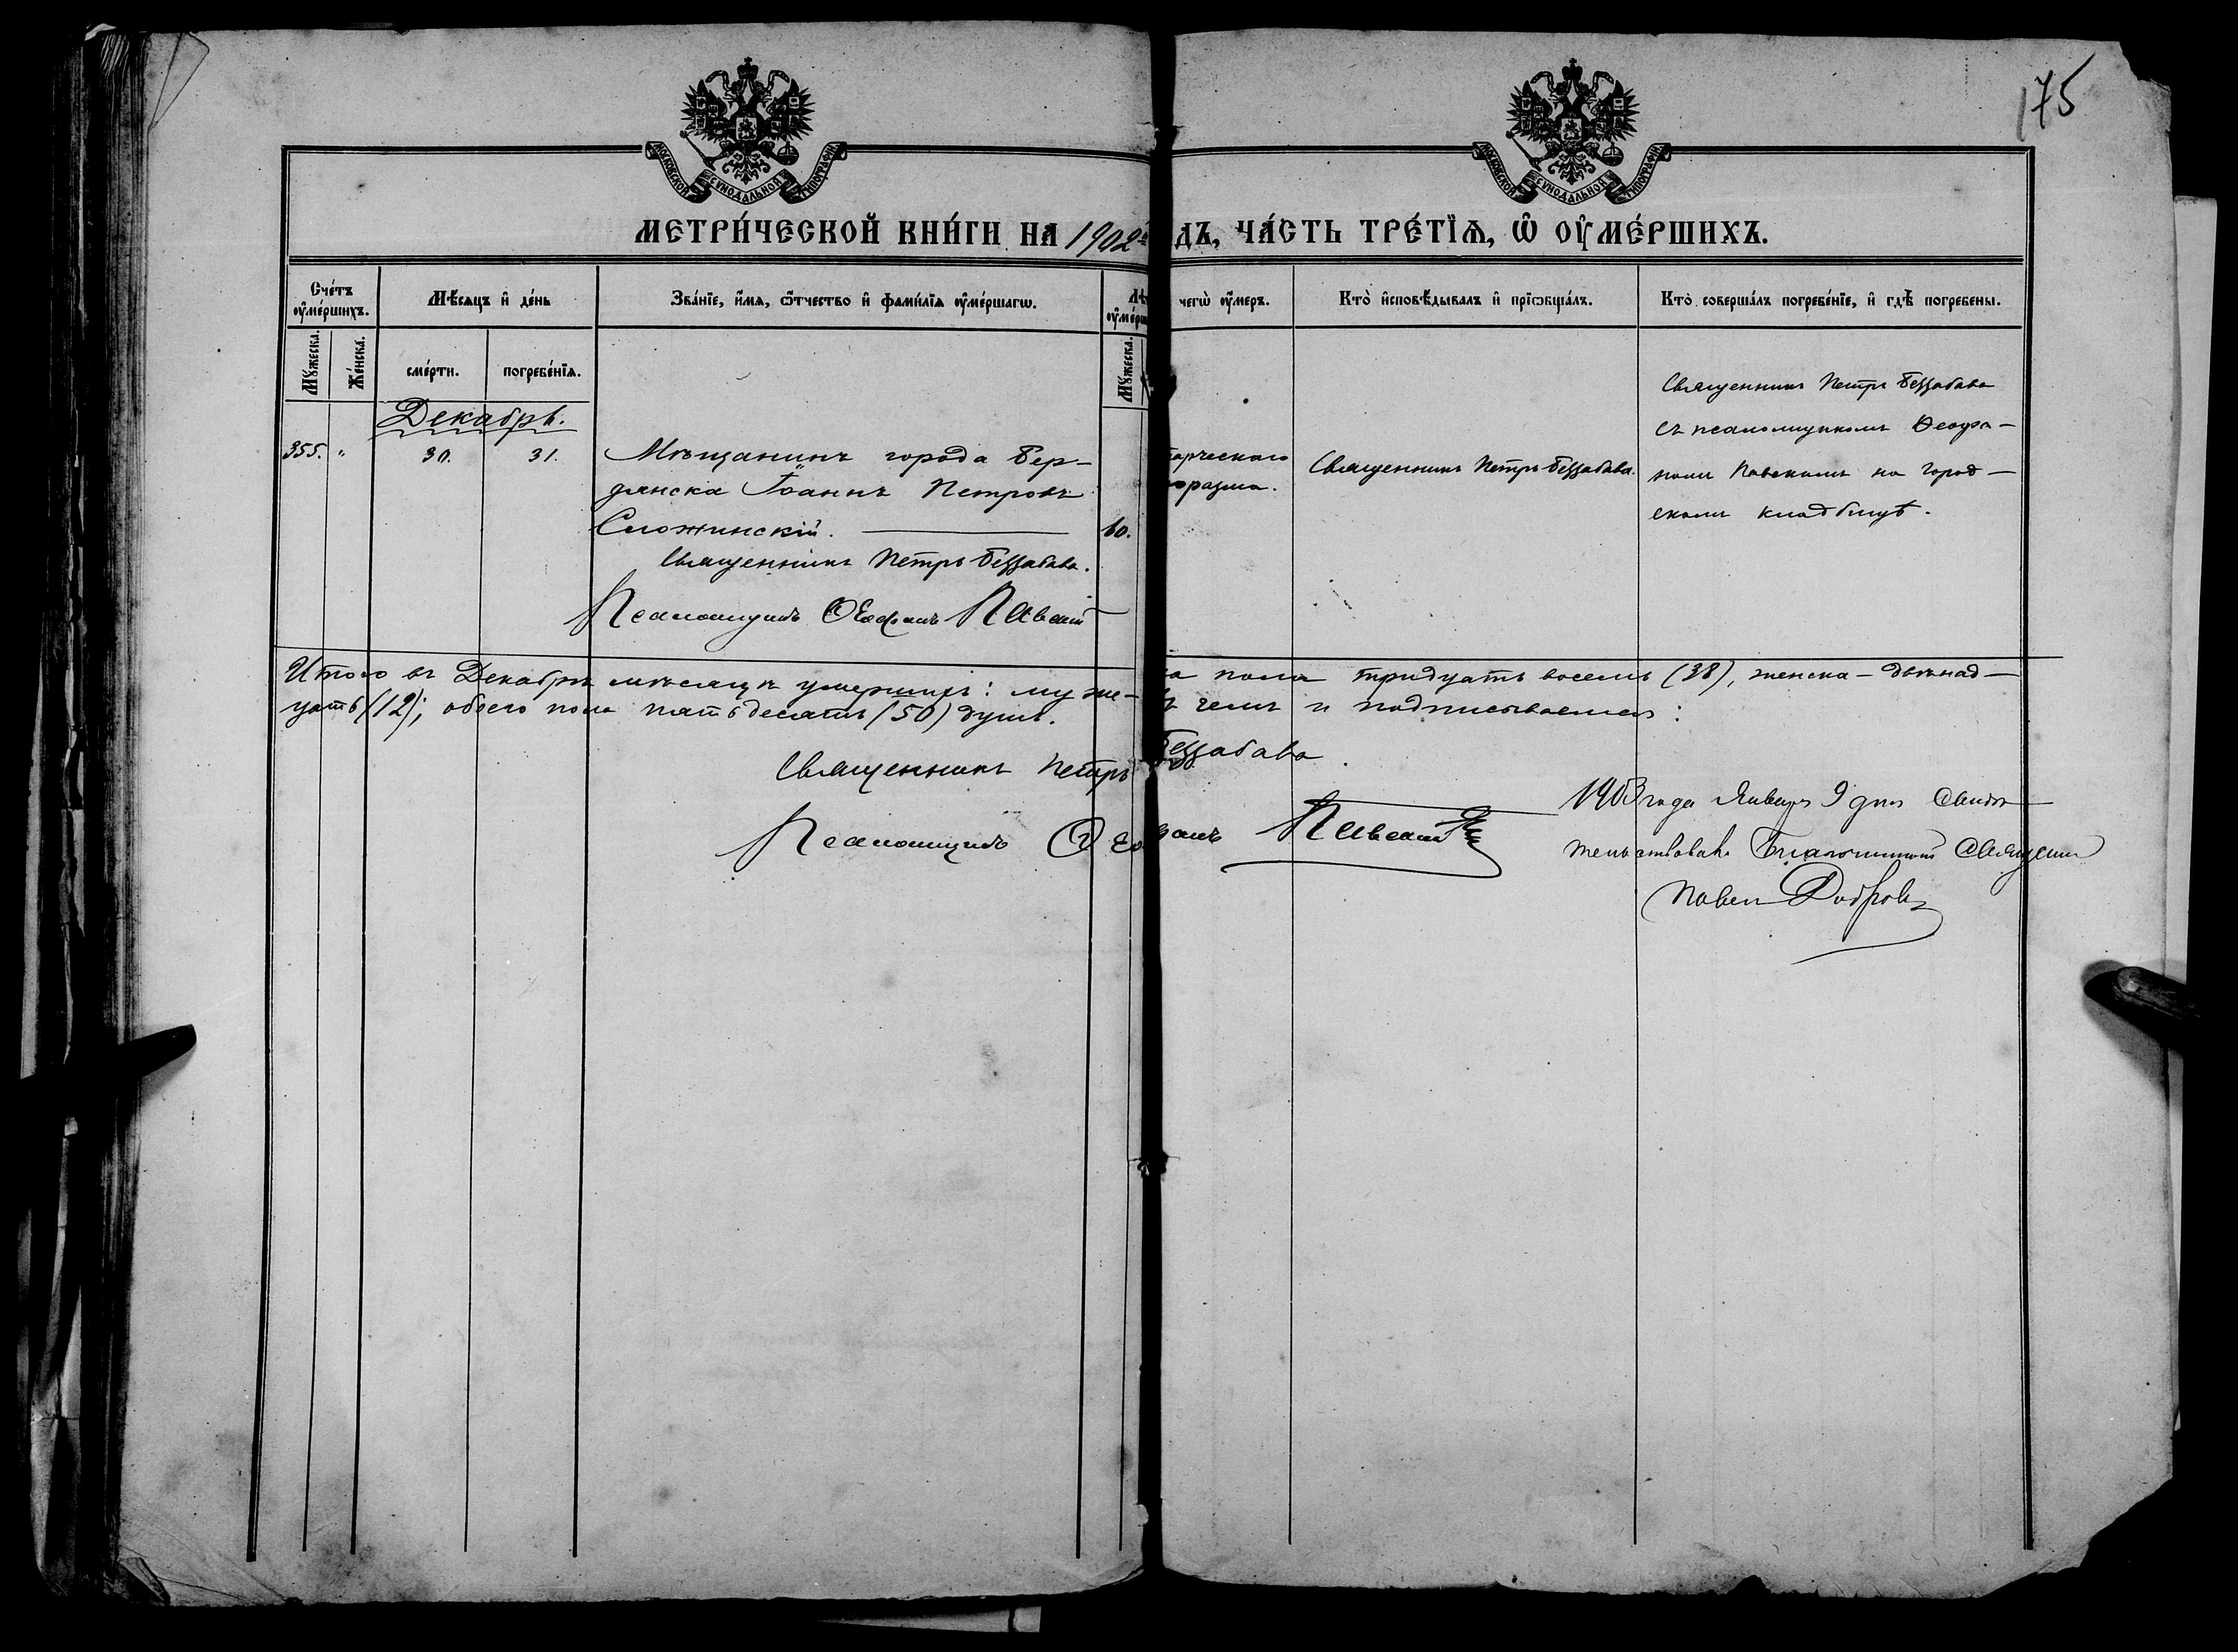 175
МОСКОВСКОЙ СѴНОДАЛЬНОЙ ТИПОГРАФІИ
МОСКОВСКОЙ СѴНОДАЛЬНОЙ ТИПОГРАФІИ
МЕТРИ́ЧЕСКОЙ КНИ́ГИ НА 1902 ДЪ, ЧА́СТЬ ТРЕ́ТІѦ, Ѡ ОУМЕ́РШИХЪ.
Сче́тъ оуме́ршихъ.
Мѣ́сяцъ и де́нь
Зва́ніе, и́мя, ѻ́тчество и фами́лія оуме́ршагѡ.
Лѣ
оуме́рш
чегѡ̀ оу́меръ.
Кто̀ исповѣ́дывалъ и пріѻбща́лъ.
Кто̀ соверша́лъ погребе́ніе, и гдѣ̀ погребены.
Му́жеска.
Же́нска.
сме́рти.
погребе́нія.
Му́жеска.
Декабрь.
355. " 30. 31.
Мѣщанинъ города Бер-
дянска Іоаннъ Петровъ
Сложинскій. 60.
Священникъ Петръ Беззабава.
Псаломщикъ Ѳеофанъ Павскій
старческаго
маразма.
Священникъ Петръ Беззабава.
Священникъ Петръ Беззабава
съ псаломщикомъ Ѳеофа-
номъ Павскимъ на город-
скомъ кладбищѣ.
Итого въ Декабрѣ мѣсяцѣ умершихъ: муже- ка пола тридцать восемь (38), женска - двѣнад-
цать (12); обоего пола пятьдесятъ (50) душъ. въ чемъ и подписываемся:
Священникъ Петръ Беззабава
Псаломщикъ Ѳеофанъ Павскій
1903 года Января 9 дня Свидѣ-
тельствовалъ Благочинный Священникъ
Павелъ Добровъ